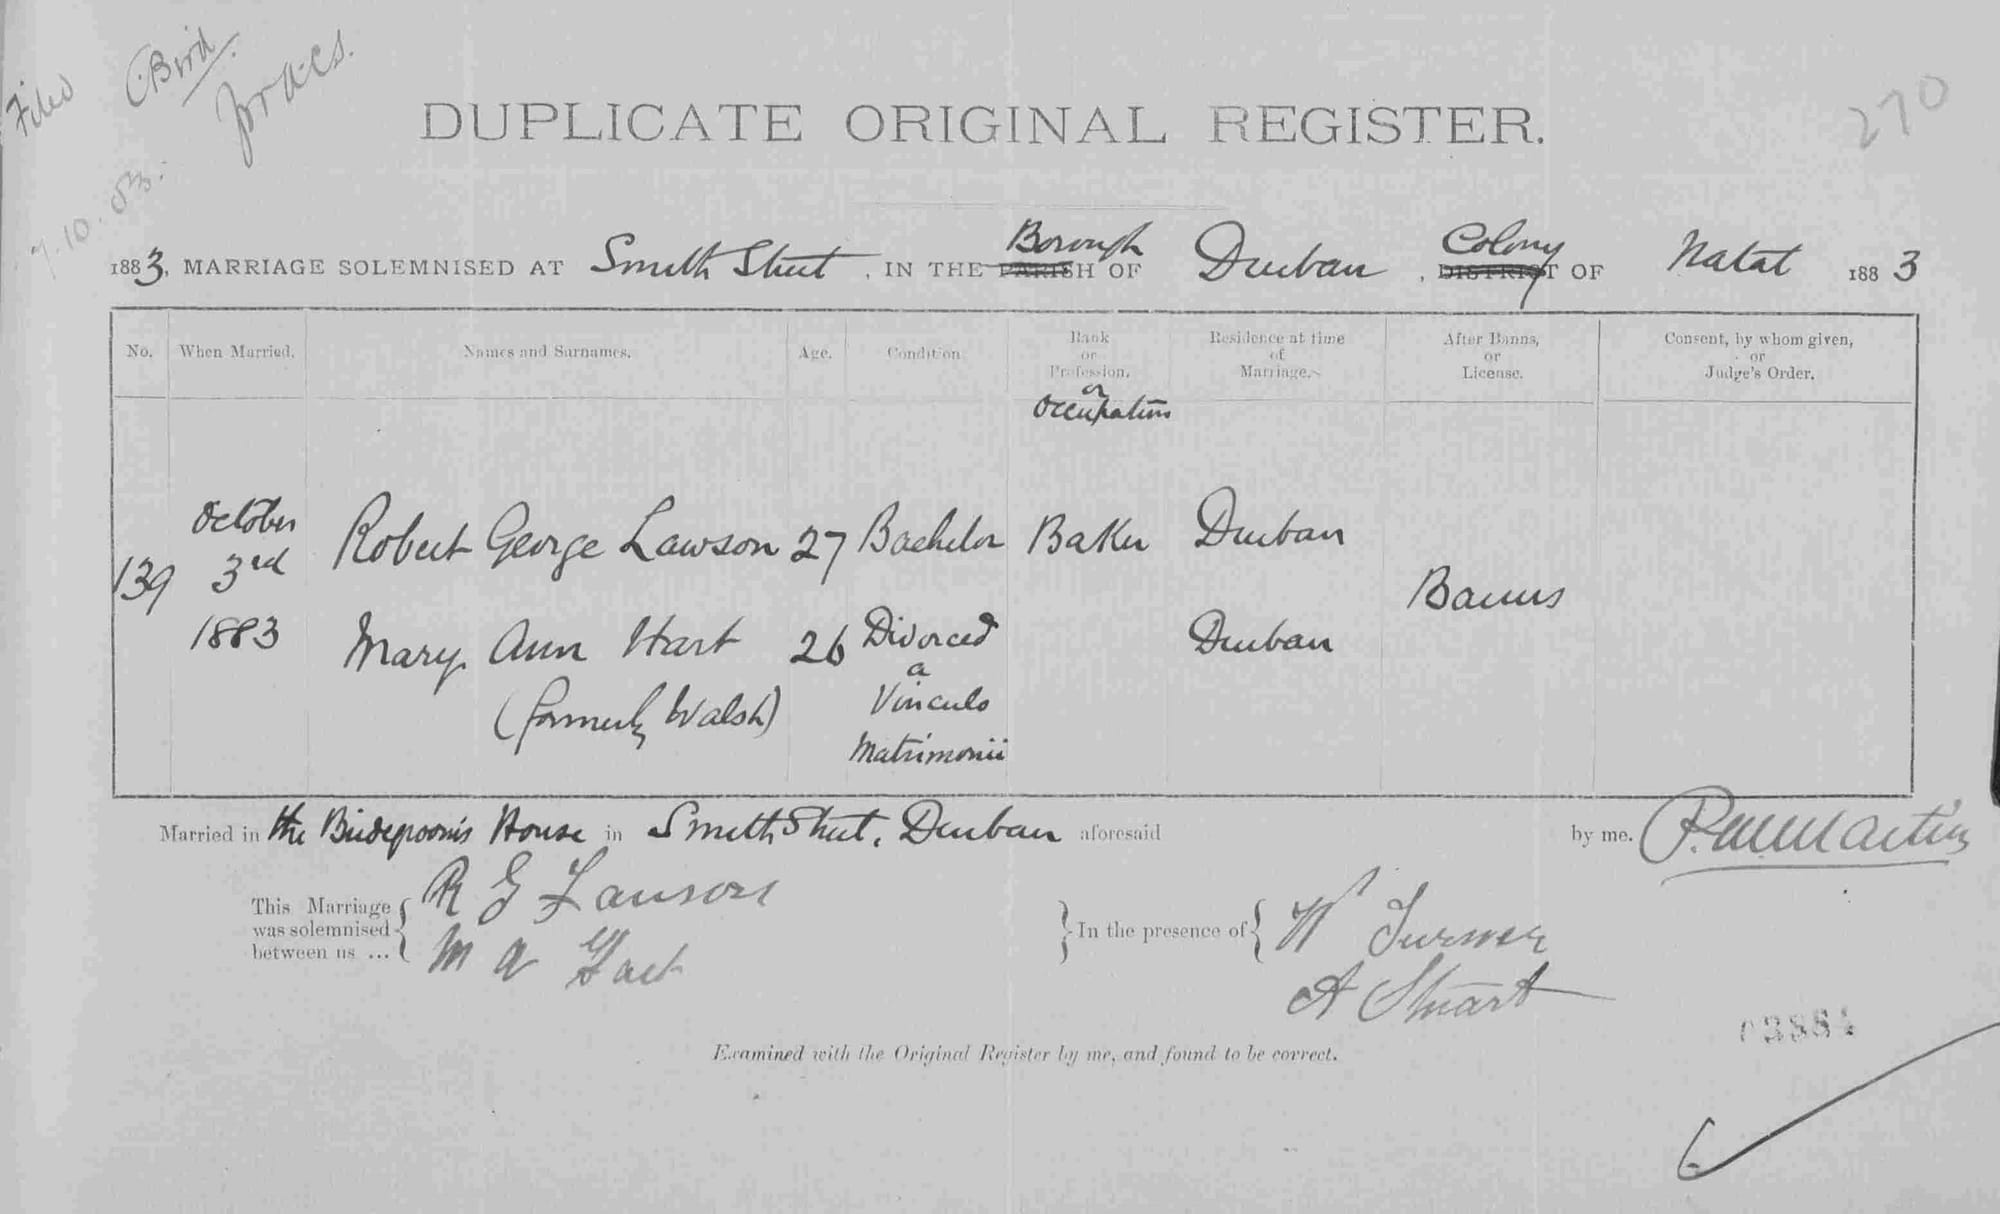 Filed CBird.
270
7.10.83.
DUPLICATE ORIGINAL REGISTER.
Borough Colony
1883, MARRIAGE SOLEMNISED AT Smith Street, IN THE PARISH OF Durban, DISTRICT OF Natal 1883
No. When Married. Names and Surnames. Age. Condition Rank or Profession. Residence at time of Marriage. After Banns, or License. Consent, by whom given, or Judge's Order.
or
Occupation
139 October 3rd 1883 Robert George Lawson 27 Bachelor Baker Durban
Banns
Mary Ann Hart 26 Divorced Durban
a
(formerly Walsh) Vinculo
Matrimonii
Married in the Bridegroom's House in Smith Street, Durban aforesaid by me.
This Marriage was solemnised between us ... { R G Lawson
M A Hart
} In the presence of { W Turner
A Stuart
Examined with the Original Register by me, and found to be correct.